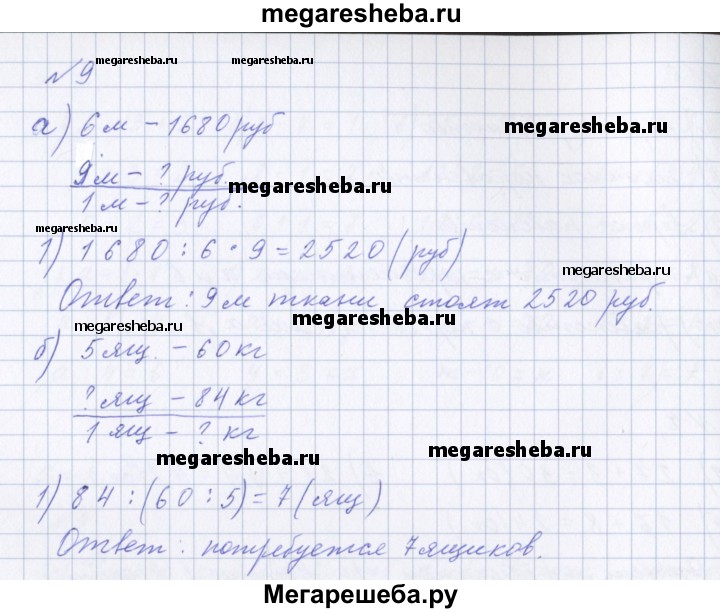 megaresheba.ru
№9 megaresheba.ru megaresheba.ru
а) 6 м – 1680 руб megaresheba.ru
9 м – ? руб. megaresheba.ru
1 м – ? руб.
megaresheba.ru
1) 1680 : 6 · 9 = 2520 (руб) megaresheba.ru
Ответ: 9 м ткани стоят 2520 руб.
megaresheba.ru megaresheba.ru
б) 5 ящ. – 60 кг megaresheba.ru
? ящ – 84 кг
1 ящ – ? кг
megaresheba.ru megaresheba.ru
1) 84 : (60 : 5) = 7 (ящ) megaresheba.ru
Ответ: потребуется 7 ящиков.
megaresheba.ru
Мегарешеба.ру